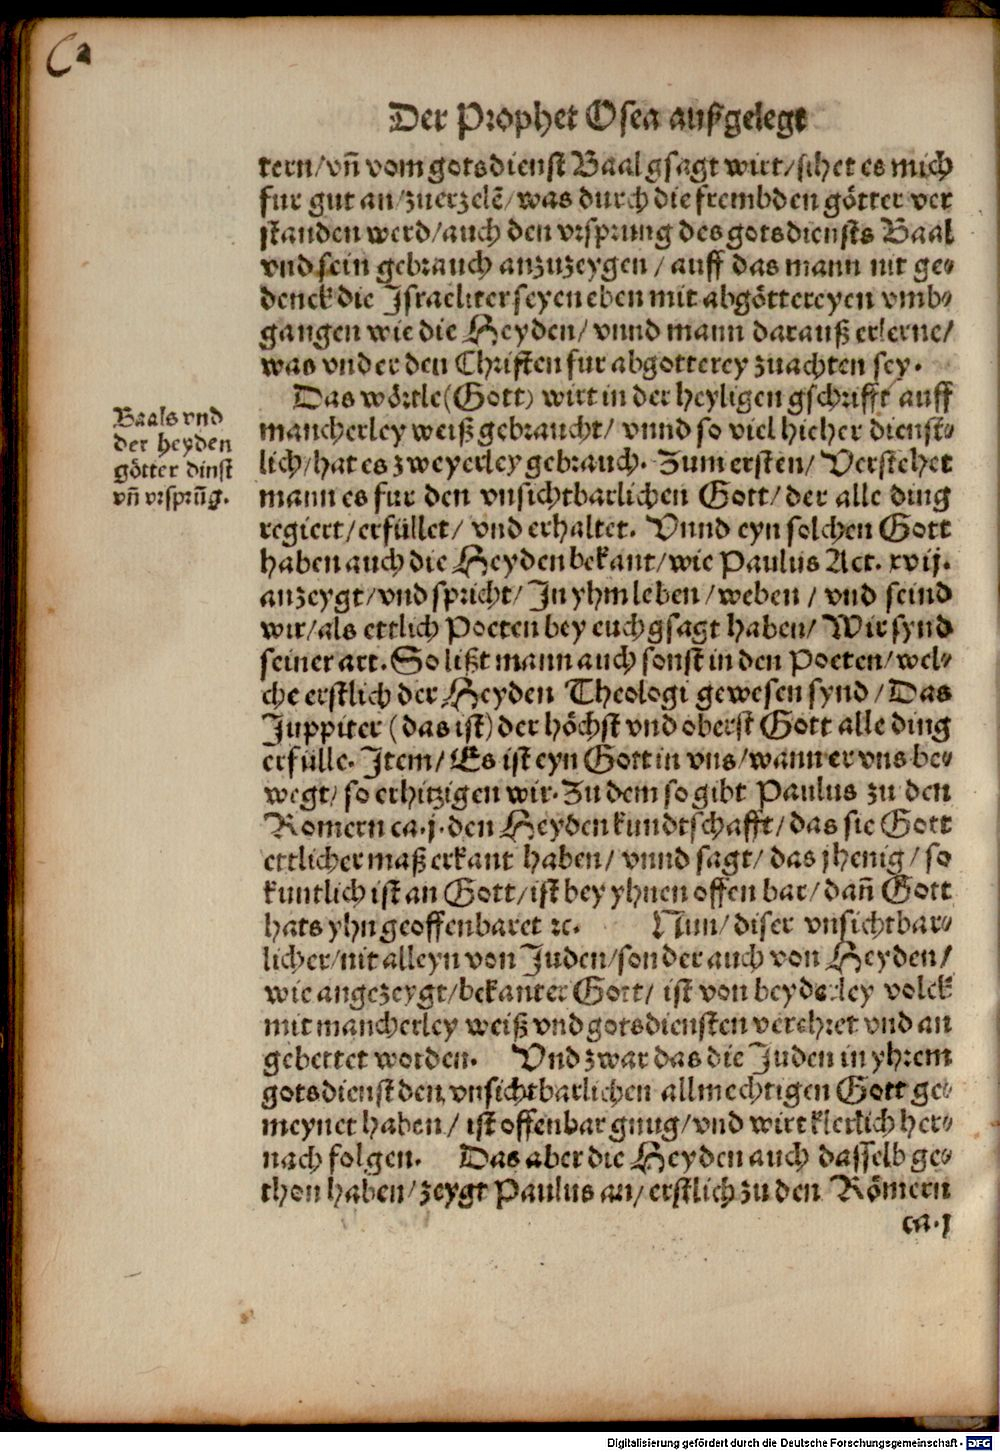 Der Prophet Osea außgelegt
tern/vñ vom gotsdienst Baal gsagt wirt/sihet es mich
fur gut an/zuerzelẽ/was durch die frembden götter ver
standen werd/auch den vrsprung des gotsdiensts Baal
vnd sein gebrauch anzuzeygen/auff das mann nit ge-
denck die Israeliter seyen eben mit abgöttereyen vmb-
gangen wie die Heyden/vnnd mann darauß erlerne/
was vnder den Christen fur abgotterey zuachten sey.
Das wörtle(Gott) wirt in der heyligen gschrifft auff
mancherley weiß gebraucht/vnnd so viel hieher dienst-
lich/hat es zweyerley gebrauch. Zum ersten/Verstehet
mann es fur den vnsichtbarlichen Gott/der alle ding
regiert/erfüllet/vnd erhaltet. Vnnd eyn solchen Gott
haben auch die Heyden bekant/wie Paulus Act. xvij.
anzeygt/vnd spricht/In yhm leben/weben/vnd seind
wir/als ettlich Poeten bey euch gsagt haben/Wir synd
seiner art. So lißt mann auch sonst in den Poeten/wel-
che erstlich der Heyden Theologi gewesen synd/Das
Juppiter (das ist) der höchst vnd oberst Gott alle ding
erfülle. Item/Es ist eyn Gott in vns/wann er vns be-
wegt/so erhitzigen wir. Zu dem so gibt Paulus zu den
Romern ca.j. den Heyden kundtschafft/das sie Gott
ettlicher maß erkant haben/vnnd sagt/das jhenig/so
kuntlich ist an Gott/ist bey yhnen offen bar/dañ Gott
hats yhn geoffenbaret ꝛc. Nun/diser vnsichtbar-
licher/nit alleyn von Juden/sonder auch von Heyden/
wie angezeygt/bekanter Gott/ist von beyderley volck
mit mancherley weiß vnd gotsdiensten verehret vnd an
gebettet worden. Vnd zwar das die Juden in yhrem
gotsdienst den vnsichtbarlichen allmechtigen Gott ge-
meynet haben/ist offenbar gnug/vnd wirt klerlich her-
nach folgen. Das aber die Heyden auch dasselb ge-
thon haben/zeygt Paulus an/erstlich zu den Römern
ca.j
Baals vnd
der heyden
götter dinst
vñ vrsprũg.
Digitalisierung gefördert durch die Deutsche Forschungsgemeinschaft - DFG